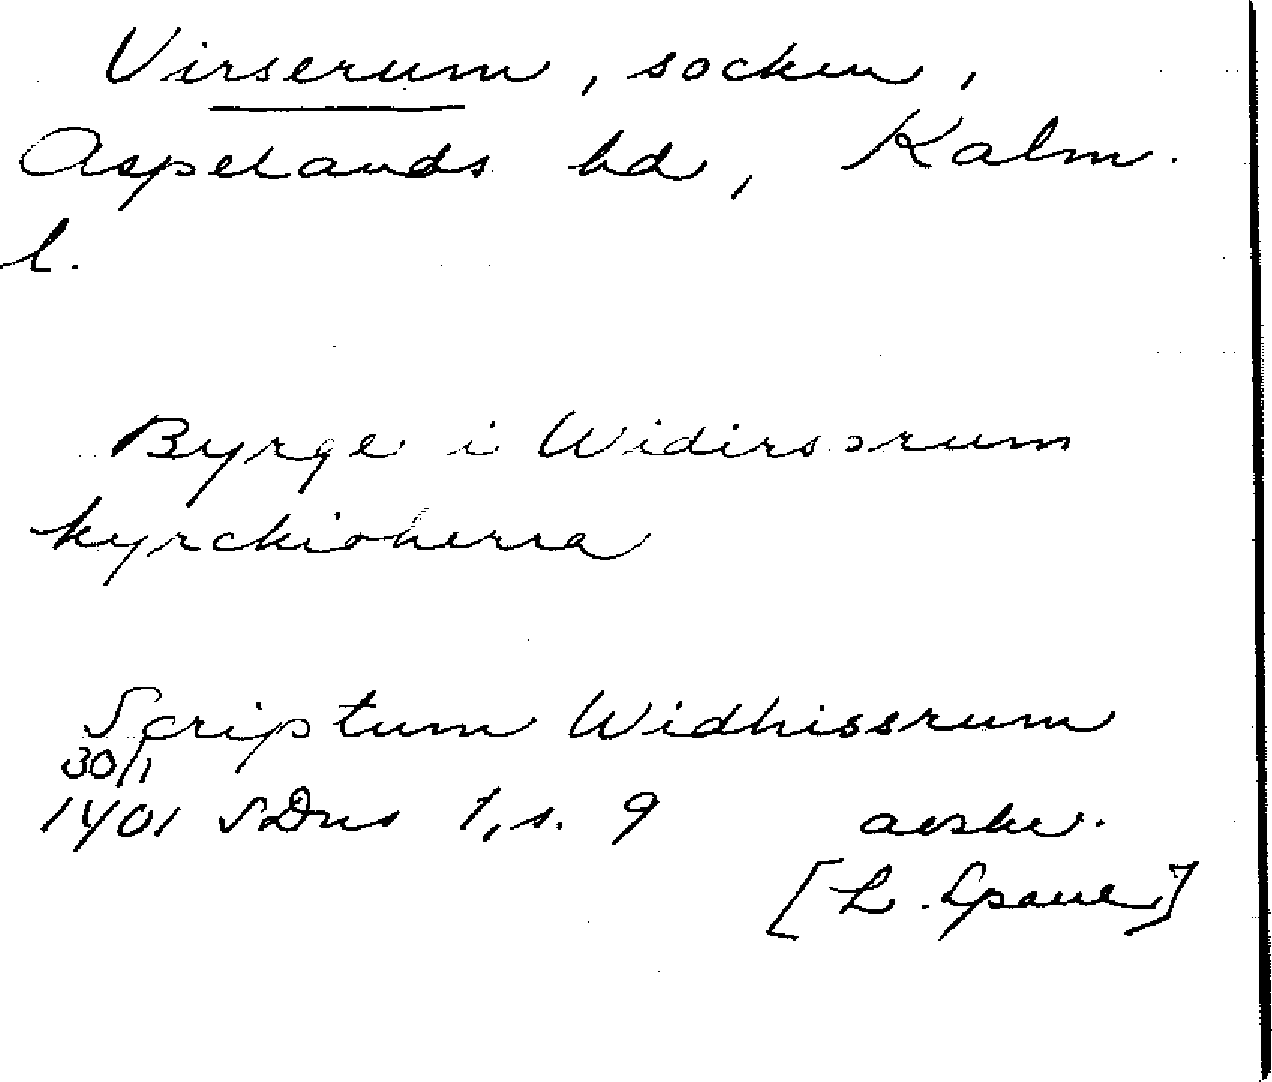 Virserum, socken,
Aspelands hd, Kalm.
l.
Byrge i Widirsørum
kyrckioherra
Scriptum Widhissrum
30/1
1401 SDns 1, s. 9 avskr.
[L.